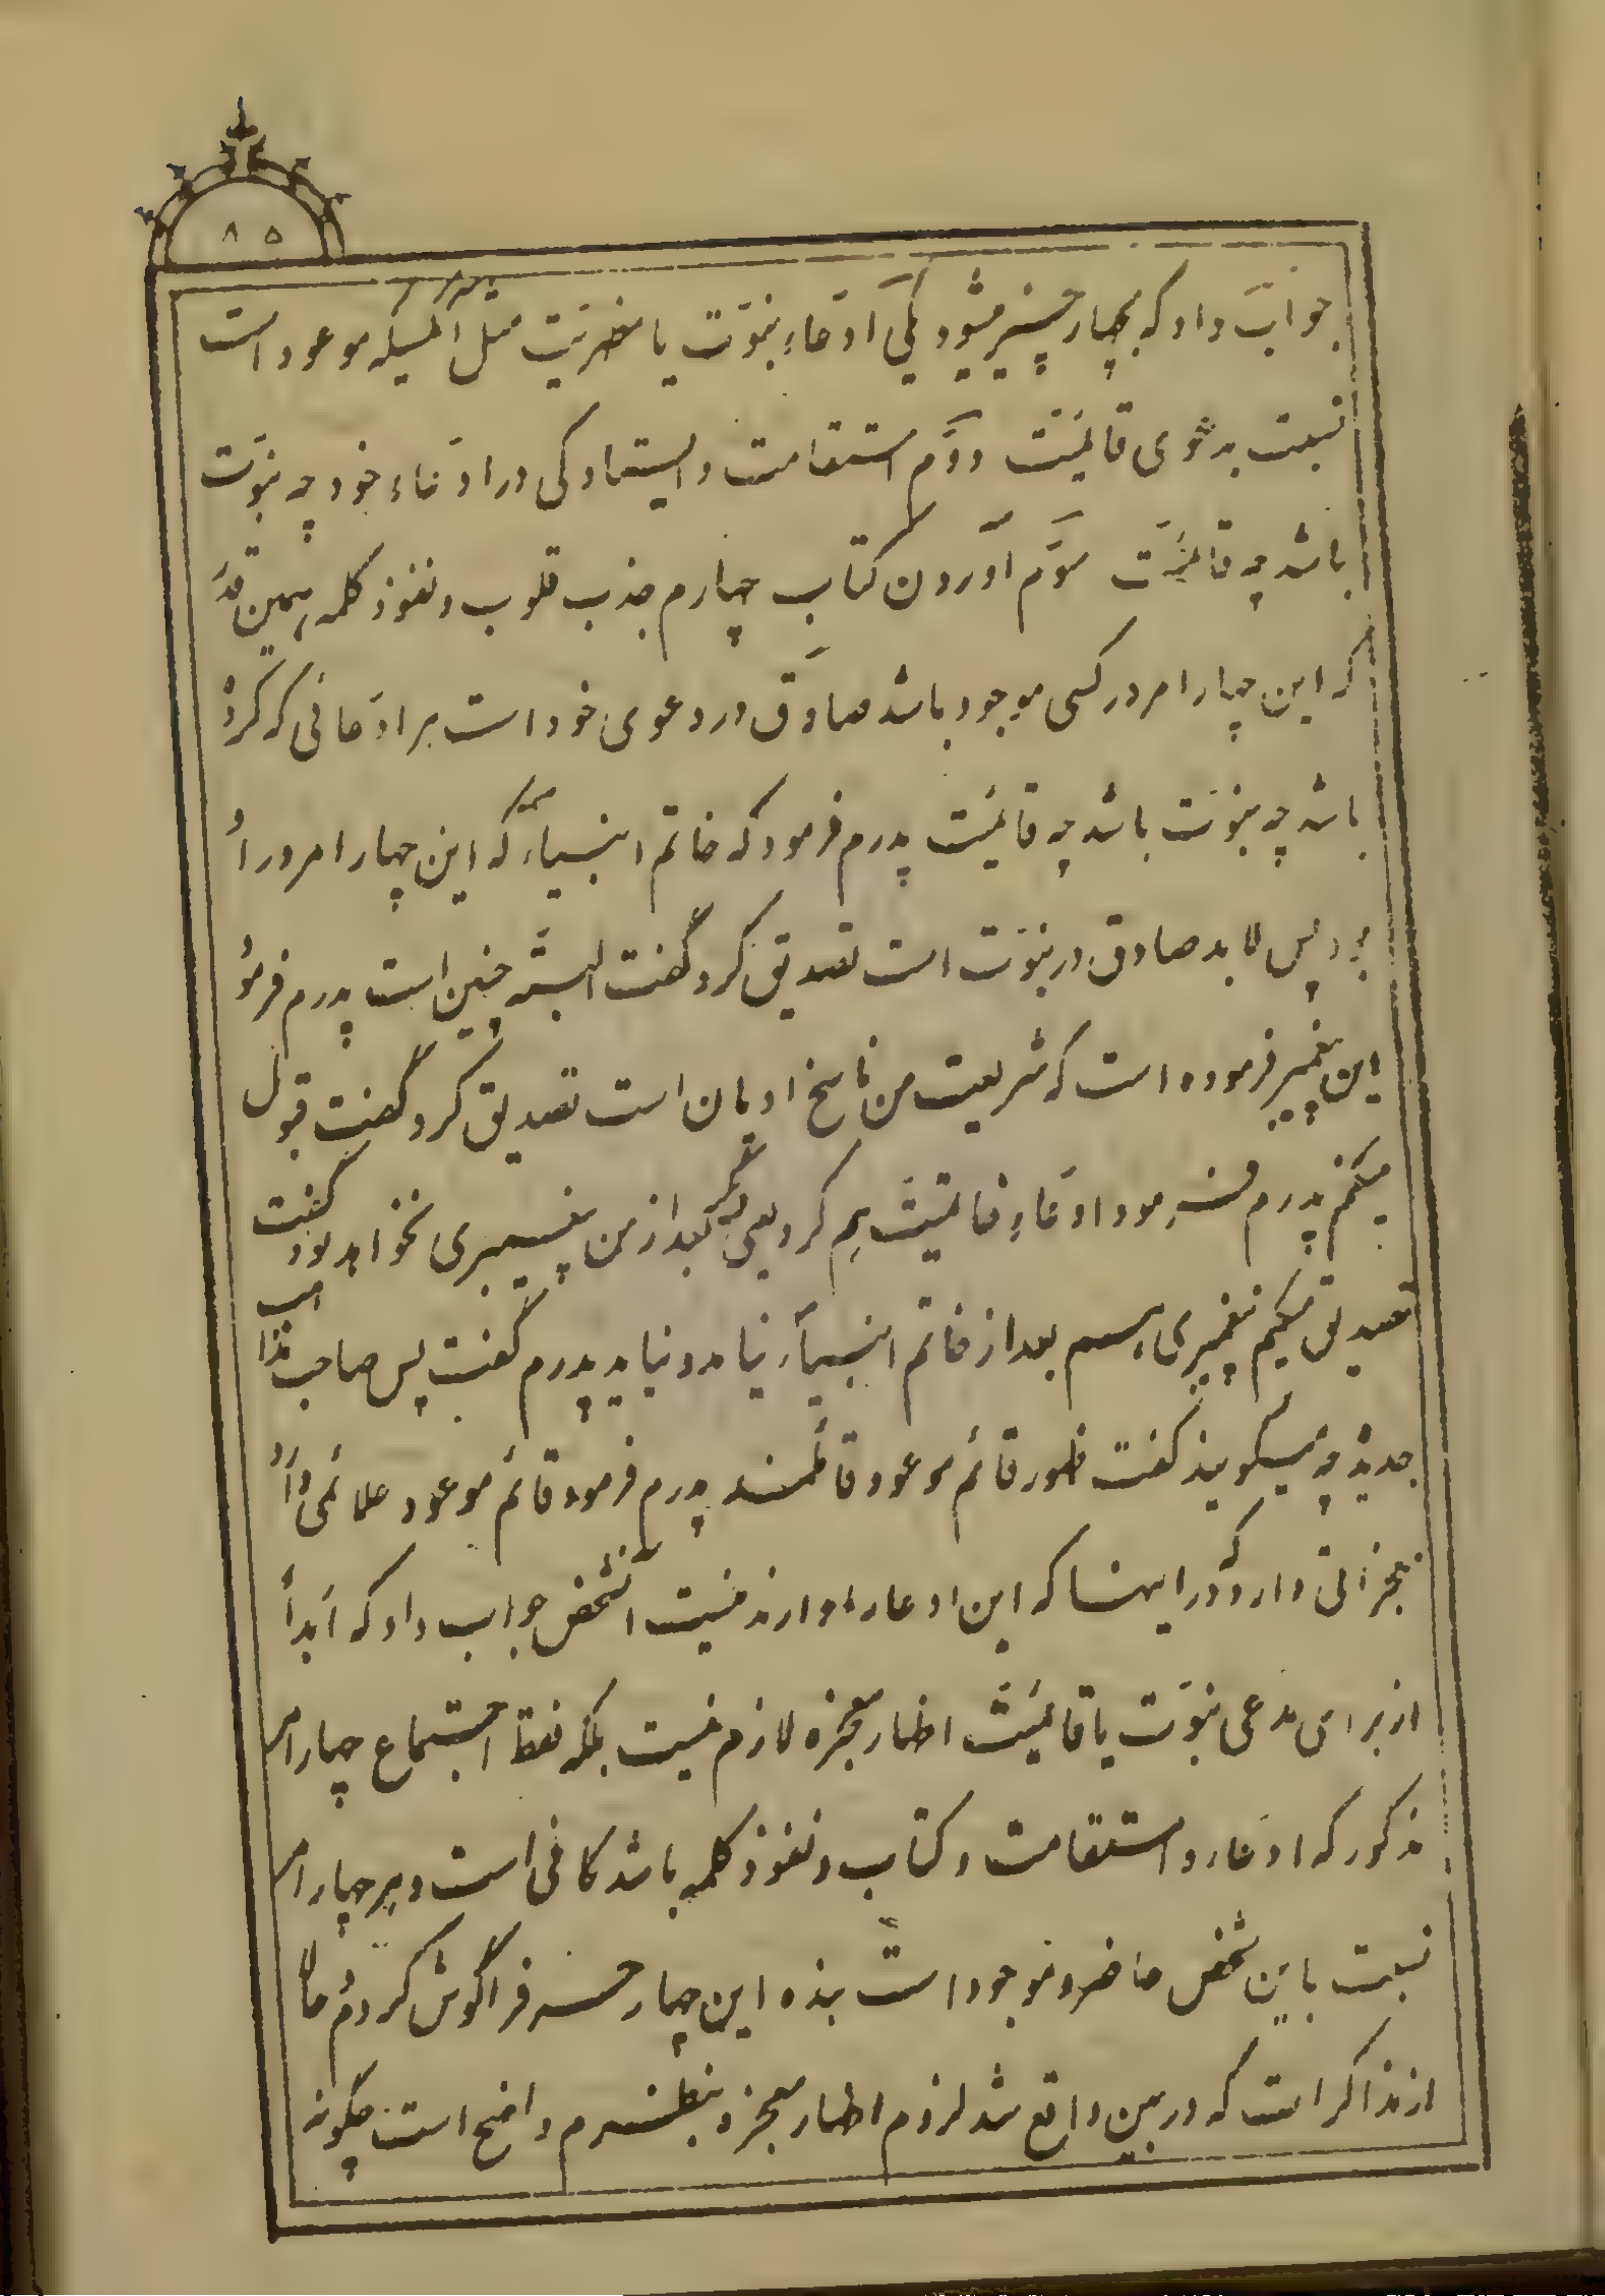 ۸۵
جواب داد که بچهار چیز میشود یکی ادّعاء نبوّت یا مظهریّت مثل آنکسیکه موعود است
نسبت بدعوی قائمیّت دوّم استقامت و ایستادگی در ادّعاء خود چه نبوّت
باشد چه قائمیّت سوّم آوردن کتاب چهارم جذب قلوب و نفوذ کلمه همین قدر
که این چهار امر در کسی موجود باشد صادق در دعوی خود است هر ادّعائی که کرده
باشد چه نبوّت باشد چه قائمیّت پدرم فرمود که خاتم انبیاء که این چهار امر در او
بود پس لابد صادق در نبوّت است تصدیق کرد گفت البتّه چنین است پدرم فرمود
این پیغمبر فرموده است که شریعت من ناسخ ادیان است تصدیق کرد گفت قبول
میکنم پدرم فرمود ادّعاء خاتمیّت هم کرد یعنی دیگر بعد از من پیغمبری نخواهد بود گفت
تصدیق میکنم پیغمبری هم بعد از خاتم انبیاء نیامد و نیاید پدرم گفت پس صاحب مذاهب
جدیده چه میگویند گفت ظهور قائم موعود قائلند پدرم فرمود قائم موعود علائمی دارد
معجزاتی دارد که در اینها که این ادعا را دارند نیست آنشخص جواب داد که ابداً
از برای مدعی نبوّت یا قائمیّت اظهار معجزه لازم نیست بلکه فقط اجتماع چهار امر
مذکور که ادّعاء و استقامت و کتاب و نفوذ کلمه باشد کافی است و هر چهار امر
نسبت باین شخص حاضر و موجود است بنده این چهار چیز فراگوش کردم حالا
از مذاکرات که در بین واقع شد لزوم اظهار معجزه بنظرم واضح است چگونه